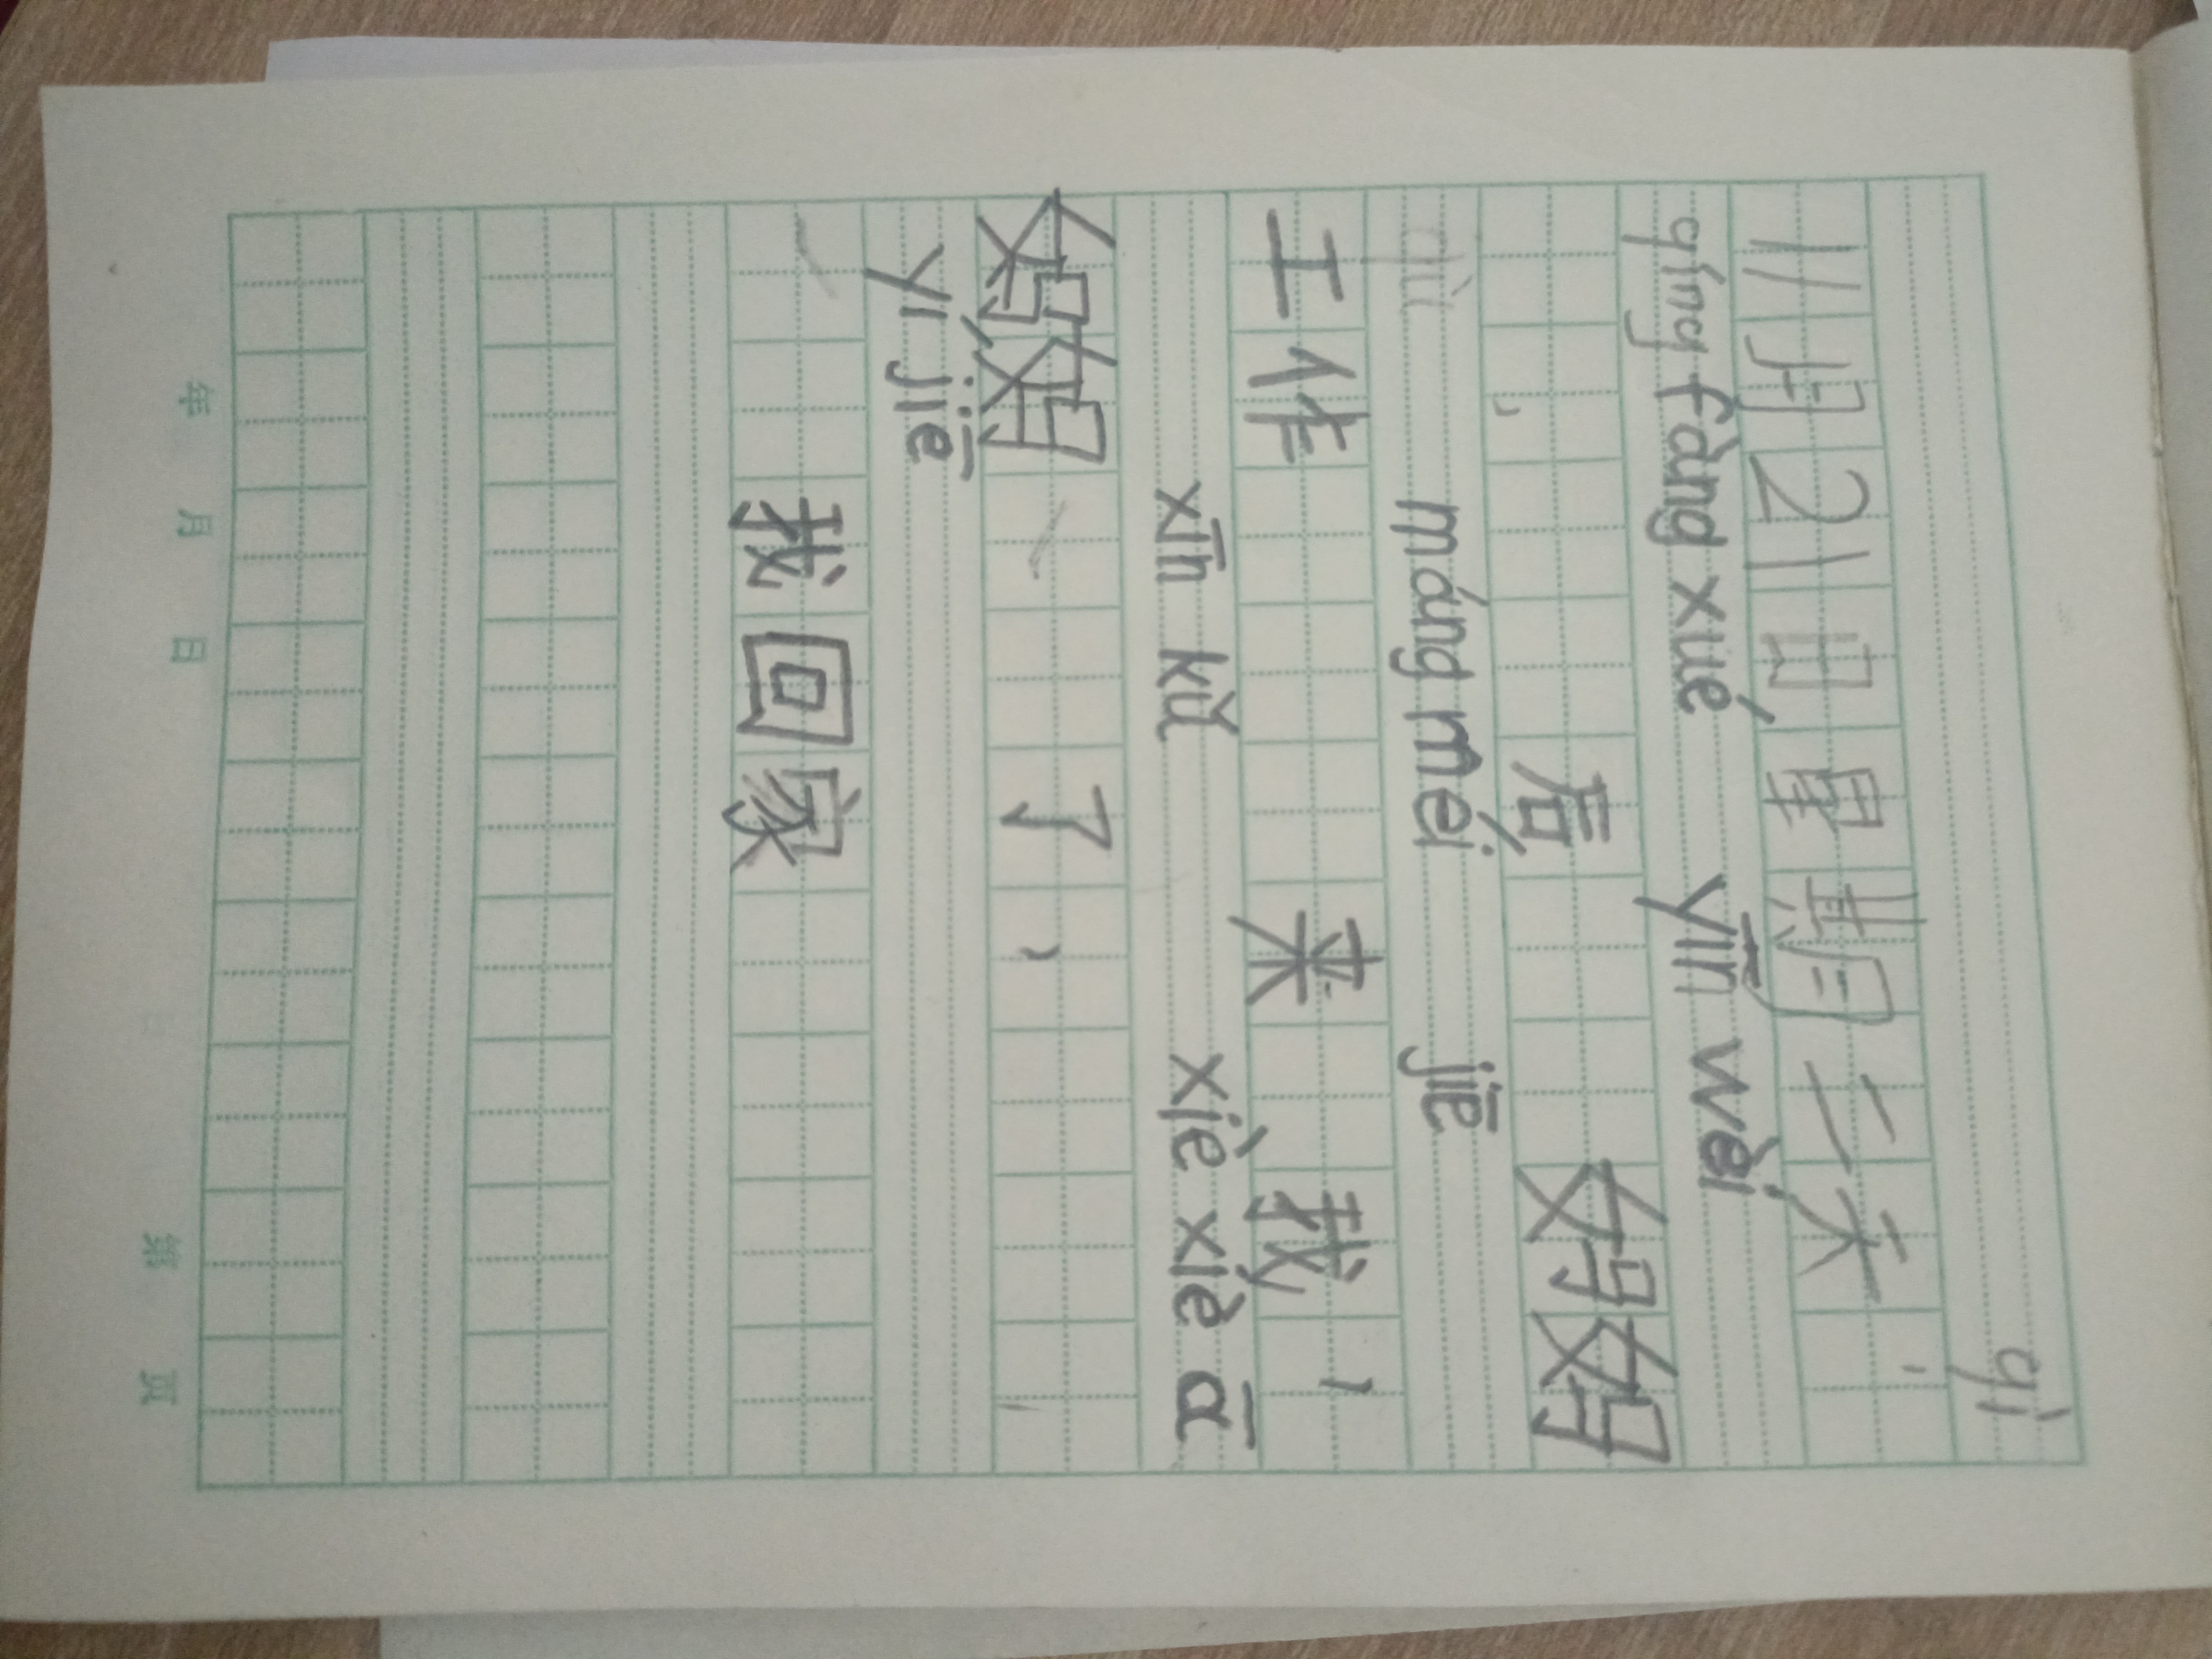 qì
11月21日星期二天,
qíng fàng xué yīn wèi
, 后 妈妈
máng méi jiē
工作 来 我,
xīn kǔ xiè xiè ā
妈妈 了,
yi jiē
我回家
年 月 日 第 页